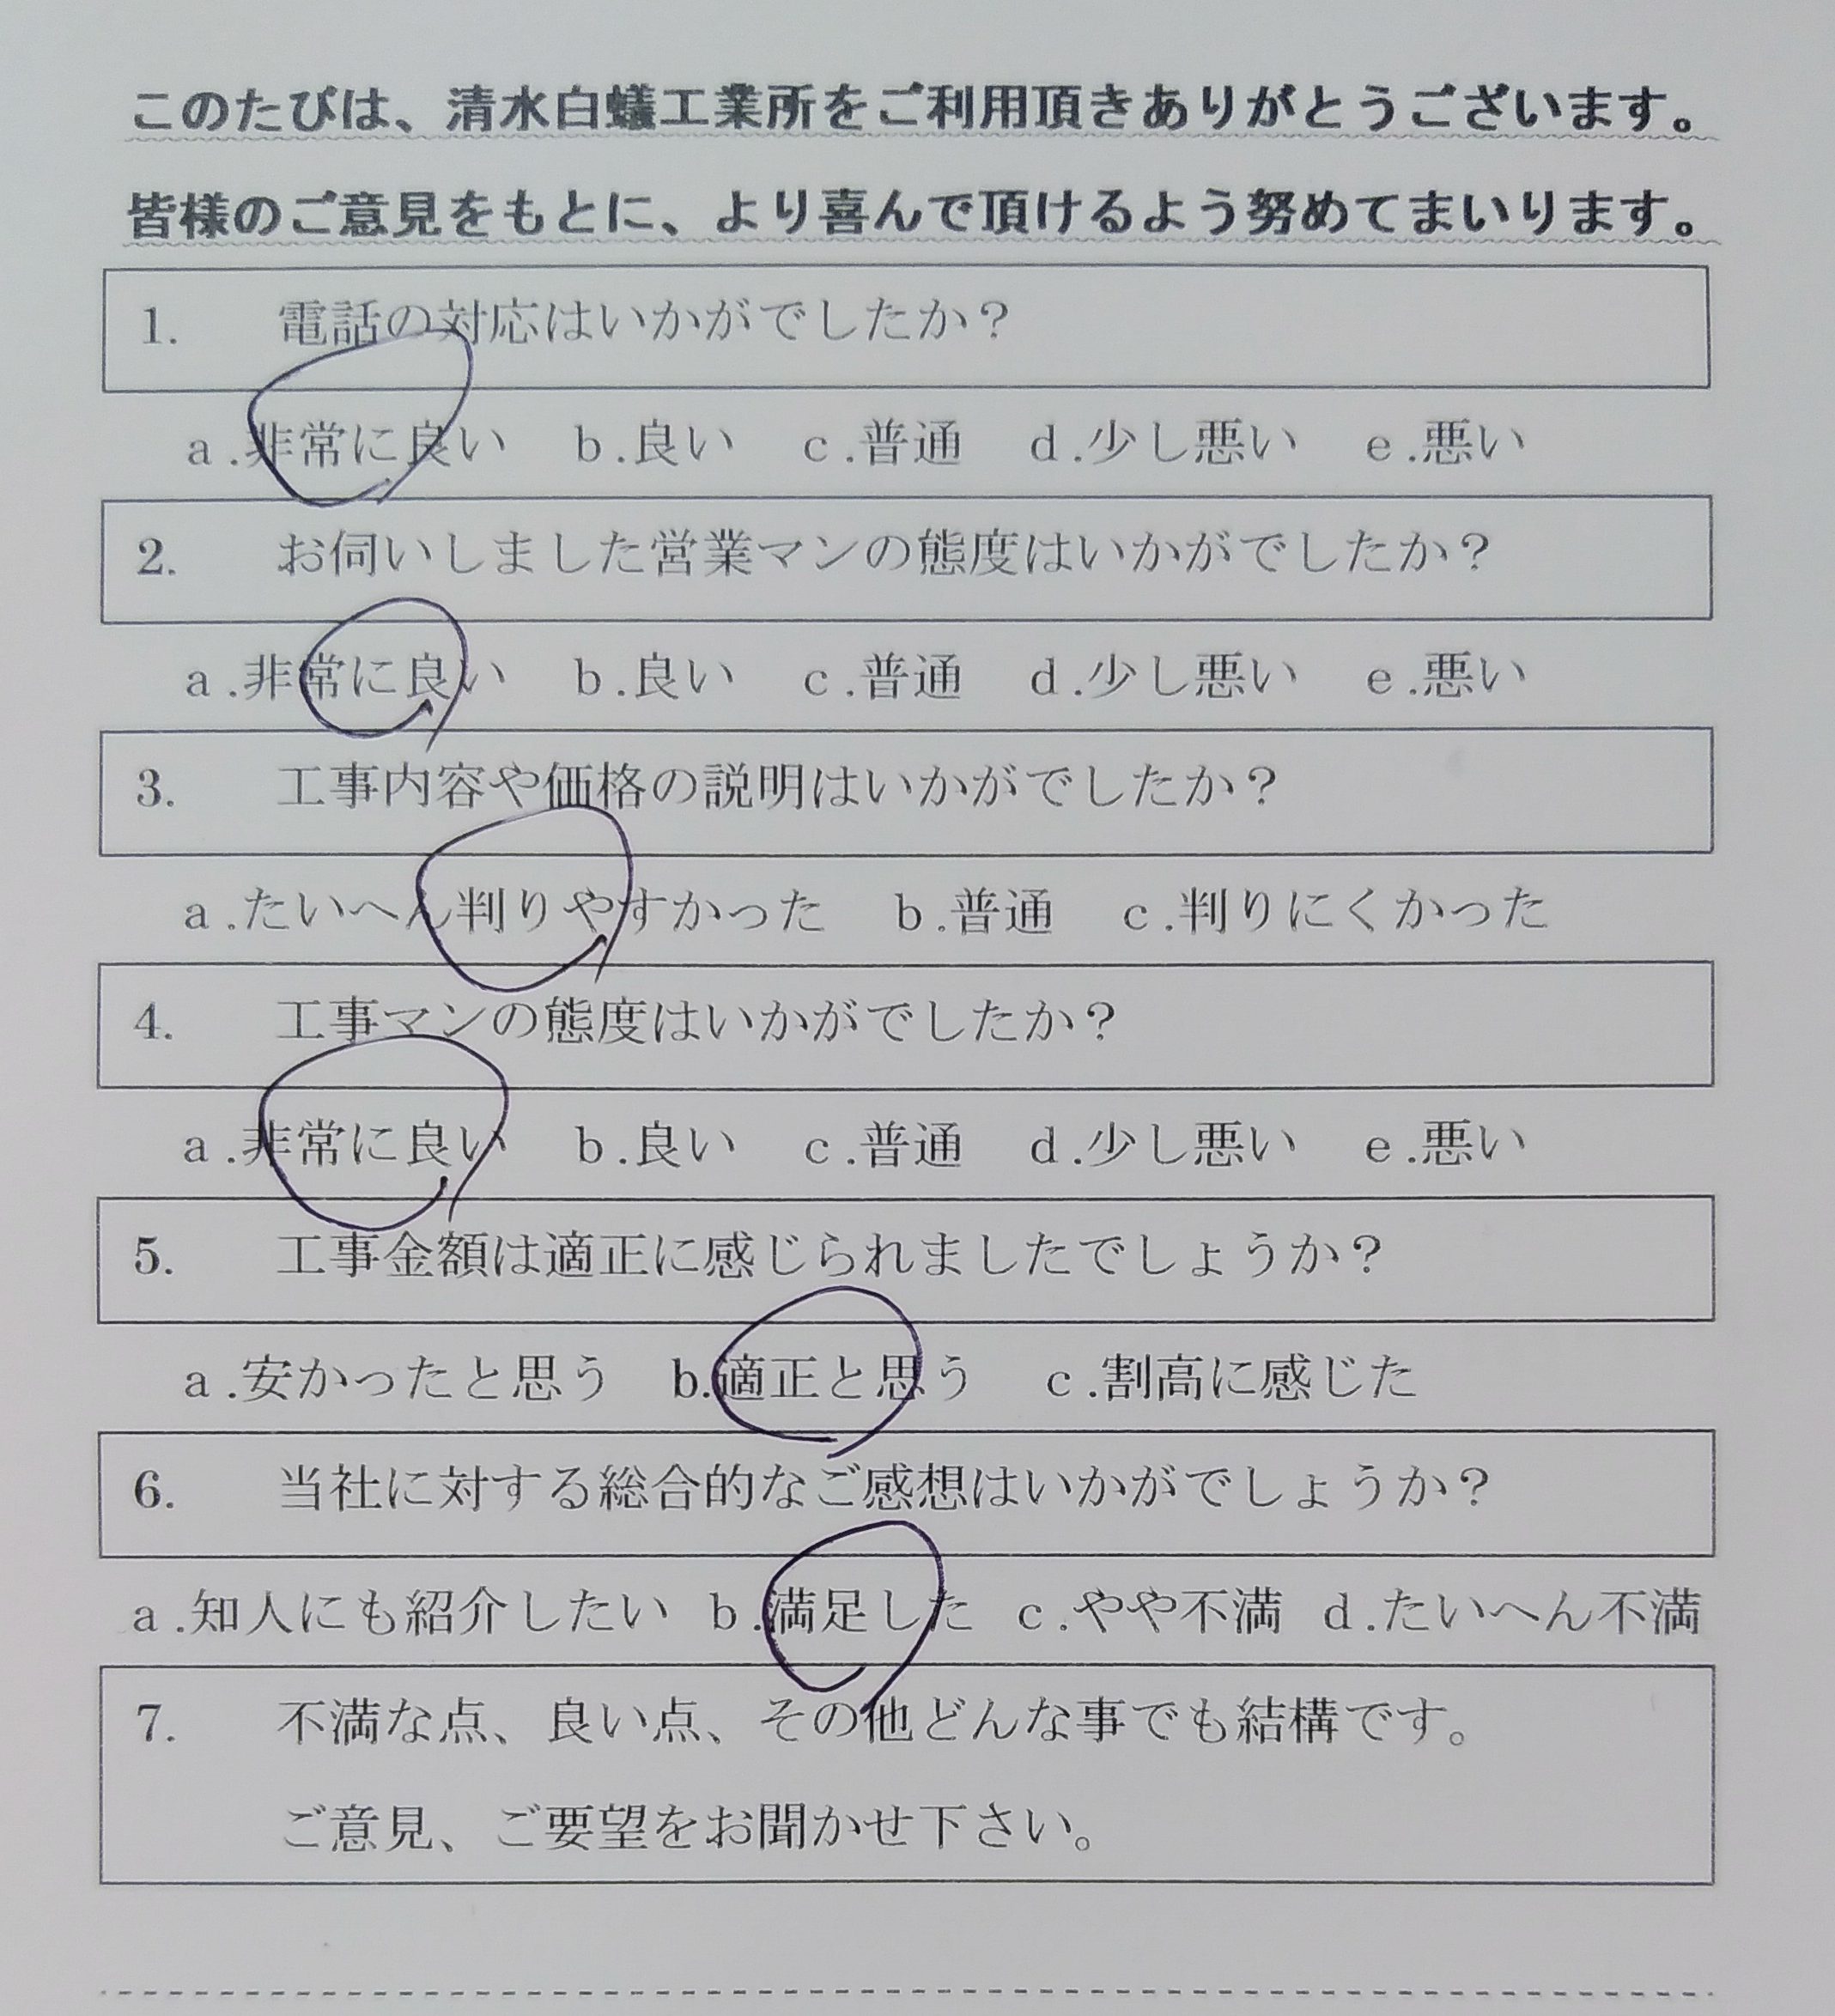 このたびは、清水白蟻工業所をご利用頂きありがとうございます。
皆様のご意見をもとに、より喜んで頂けるよう努めてまいります。
1. 電話の対応はいかがでしたか？
a.非常に良い b.良い c.普通 d.少し悪い e.悪い
2. お伺いしました営業マンの態度はいかがでしたか？
a.非常に良い b.良い c.普通 d.少し悪い e.悪い
3. 工事内容や価格の説明はいかがでしたか？
a.たいへん判りやすかった b.普通 c.判りにくかった
4. 工事マンの態度はいかがでしたか？
a.非常に良い b.良い c.普通 d.少し悪い e.悪い
5. 工事金額は適正に感じられましたでしょうか？
a.安かったと思う b.適正と思う c.割高に感じた
6. 当社に対する総合的なご感想はいかがでしょうか？
a.知人にも紹介したい b.満足した c.やや不満 d.たいへん不満
7. 不満な点、良い点、その他どんな事でも結構です。
ご意見、ご要望をお聞かせ下さい。